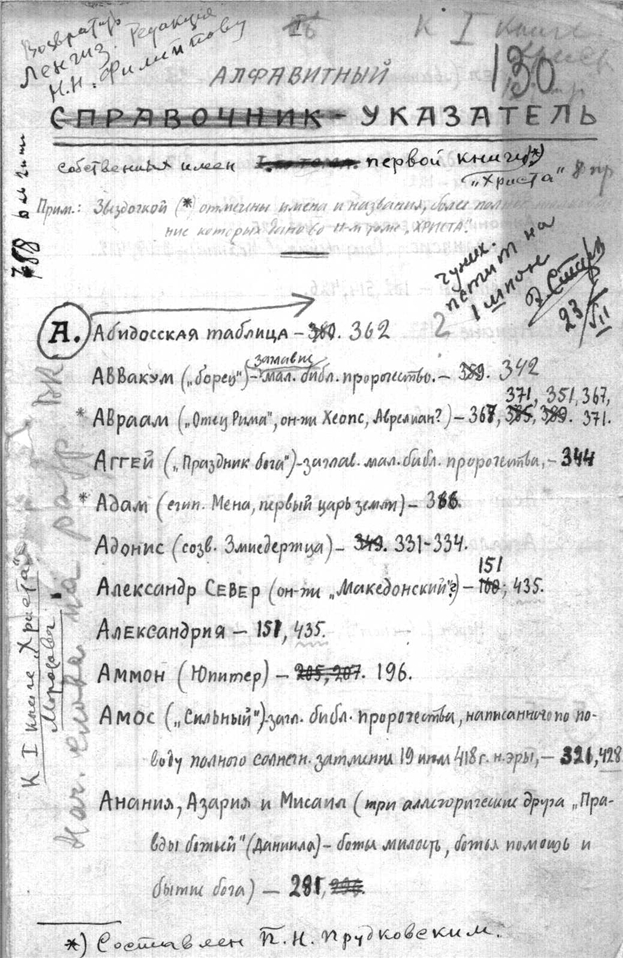 Возвратить
Ленгиз. Редакция
Н.Н. Филиппову
К I книге
130
АЛФАВИТНЫЙ
СПРАВОЧНИК-УКАЗАТЕЛЬ
собственных имен первой книги *)
„Христа"
Прим.: Звездочкой (*) отмечены имена и названия, более
ние которых дано во II томе „ХРИСТА".
петит на
1 шпоне
23/VII
А. Абидосская таблица – 362
АВВАКУМ („борец") – заглавие мал. библ. пророчество. – 342
371, 351, 367,
* АВРААМ („Отец Рима", он-же Хеопс, Аврелиан?) – 367, 385, 389. 371.
АГГЕЙ („Праздник бога") – заглав. мал. библ. пророчества, – 344
* АДАМ (егип. Мена, первый царь земли) – 366.
АДОНИС (созв. Змиедержца) – 349. 331-334.
151
АЛЕКСАНДР СЕВЕР (он-же „Македонский"?) – 435.
АЛЕКСАНДРИЯ – 151, 435.
АММОН (Юпитер) – 205, 207. 196.
АМОС („Сильный") – загл. библ. пророчества, написанного по по-
воду полного солнечн. затмения 19 июля 418 г. н. эры, – 321, 428
АНАНИЯ, АЗАРИЯ И МИСАИЛ (три аллегорические друга „Пра-
вды божьей" (Даниила) – божья милость, божья помощь и
бытие бога) – 281,
*) Составлен П. Н. Прудковским.
К I книге „Христа"
Морозова
Нач. слова на разр